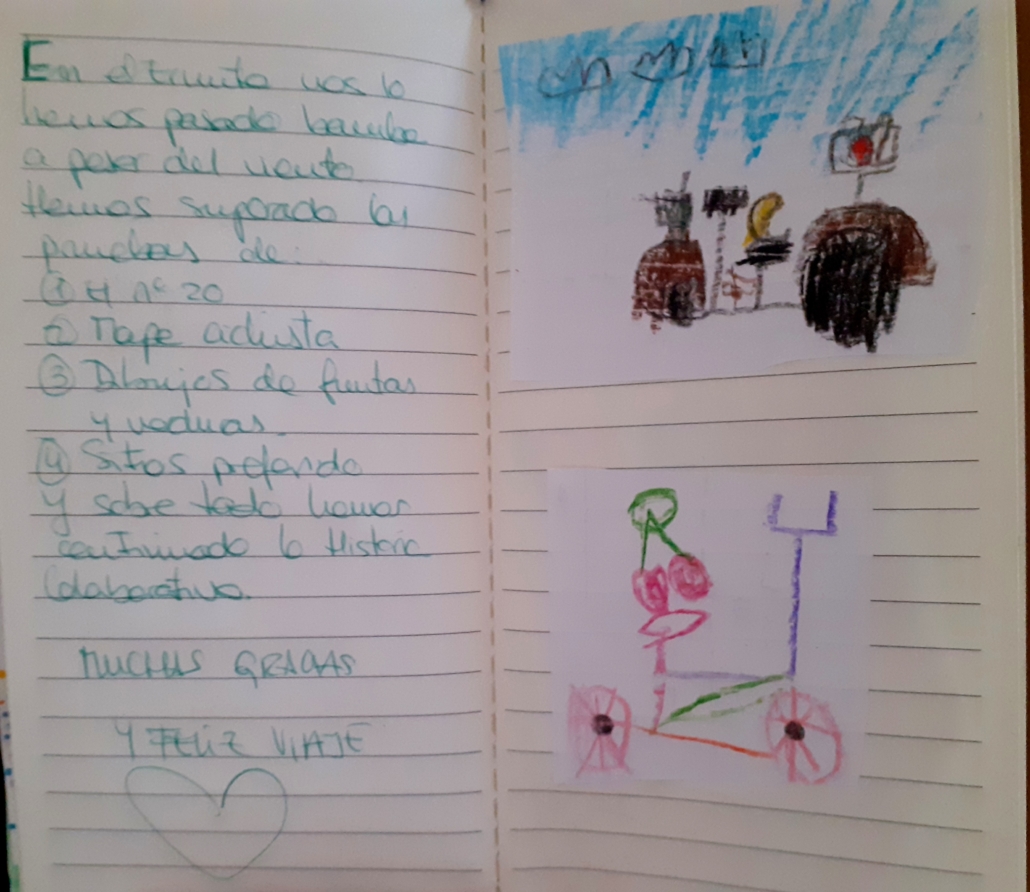 En el triunfo nos lo
hemos pasado bomba
a pesar del viento
Hemos superado las
pruebas de:
① El nº 20
② Mapa ciclista
③ Dibujos de frutas
y verduras.
④ Sitios preferido
Y sobre todo hemos
continuado la Historia
Colaborativa.
MUCHAS GRACIAS
Y FELIZ VIAJE